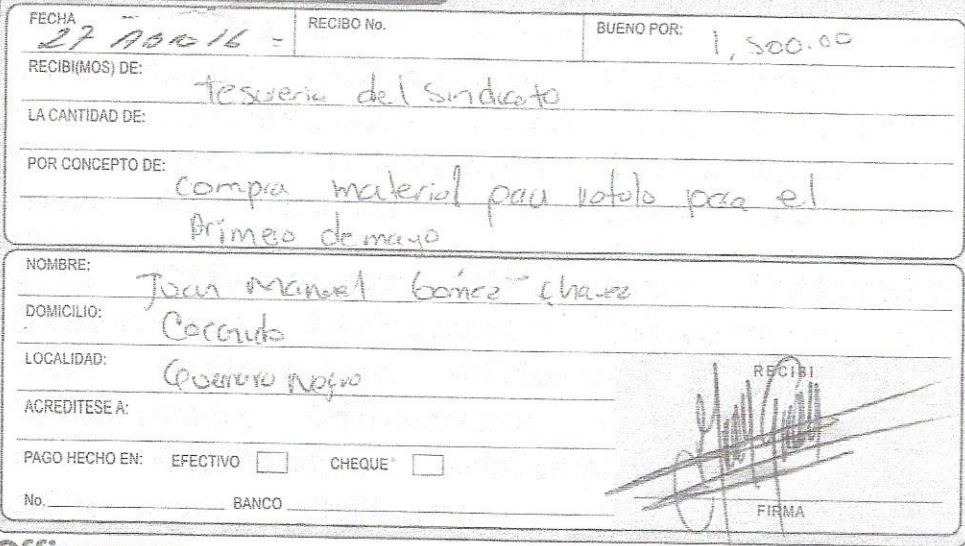 FECHA RECIBO No. BUENO POR: 1,500.00
27 Abr 16 =
RECIBI(MOS) DE:
tesoreria del Sindicato
LA CANTIDAD DE:
POR CONCEPTO DE:
compra material para para el
Primero de mayo
NOMBRE:
Juan Manuel Gómez Chavez
DOMICILIO:
LOCALIDAD:
Guerrero Negro
RECIBI
ACREDITESE A:
PAGO HECHO EN: EFECTIVO CHEQUE
No. BANCO
FIRMA